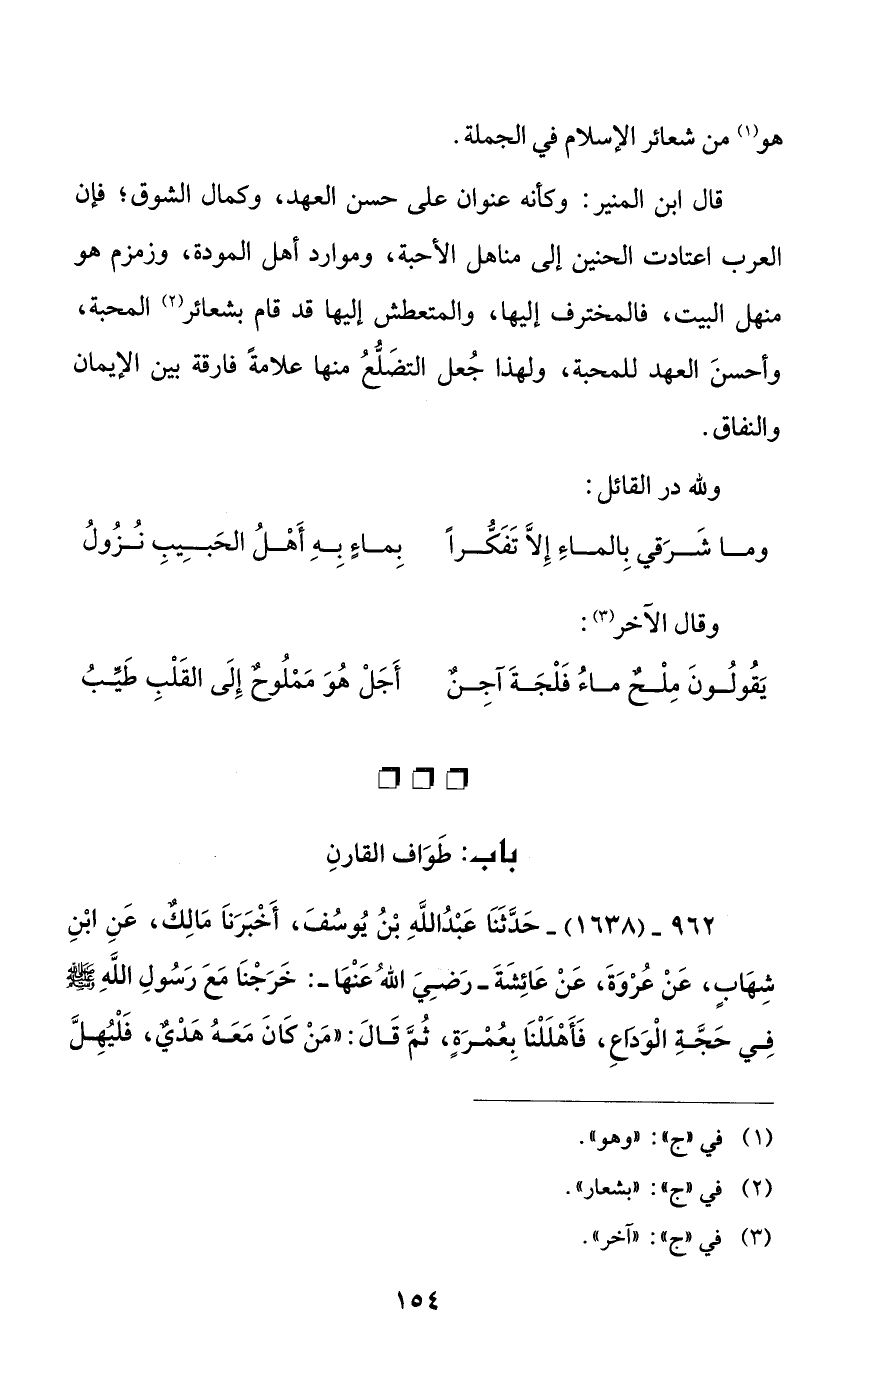 هو(١) من شعائر الإسلام في الجملة.
قال ابن المنير: وكأنه عنوان على حسن العهد، وكمال الشوق؛ فإن
العرب اعتادت الحنين إلى مناهل الأحبة، وموارد أهل المودة، وزمزم هو
منهل البيت، فالمخترف إليها، والمتعطش إليها قد قام بشعائر(٢) المحبة،
وأحسنَ العهد للمحبة، ولهذا جُعل التضَلُّعُ منها علامةً فارقة بين الإيمان
والنفاق.
ولله در القائل:
وما شَرَقي بِالماءِ إِلاَّ تَفَكُّراً بِماءٍ بِهِ أَهْلُ الحَبيبِ نُزُولُ
وقال الآخر(٣):
يَقُولُونَ مِلْحٌ ماءُ فَلْجَةَ آجِنٌ أَجَلْ هُوَ مَمْلُوحٌ إِلَى القَلْبِ طَيِّبُ
باب: طَوَاف القارنِ
٩٦٢ - (١٦٣٨) - حَدَّثَنَا عَبْدُاللَّهِ بْنُ يُوسُفَ، أَخْبَرَنَا مَالِكٌ، عَنِ ابْنِ
شِهَابٍ، عَنْ عُرْوَةَ، عَنْ عَائِشَةَ - رَضِيَ اللهُ عَنْهَا -: خَرَجْنَا مَعَ رَسُولِ اللَّهِ ﷺ
فِي حَجَّةِ الْوَدَاعِ، فَأَهْلَلْنَا بِعُمْرَةٍ، ثُمَّ قَالَ: «مَنْ كَانَ مَعَهُ هَدْيٌ، فَلْيُهِلَّ
(١) في «ج»: «وهو».
(٢) في «ج»: «بشعار».
(٣) في «ج»: «آخر».
١٥٤